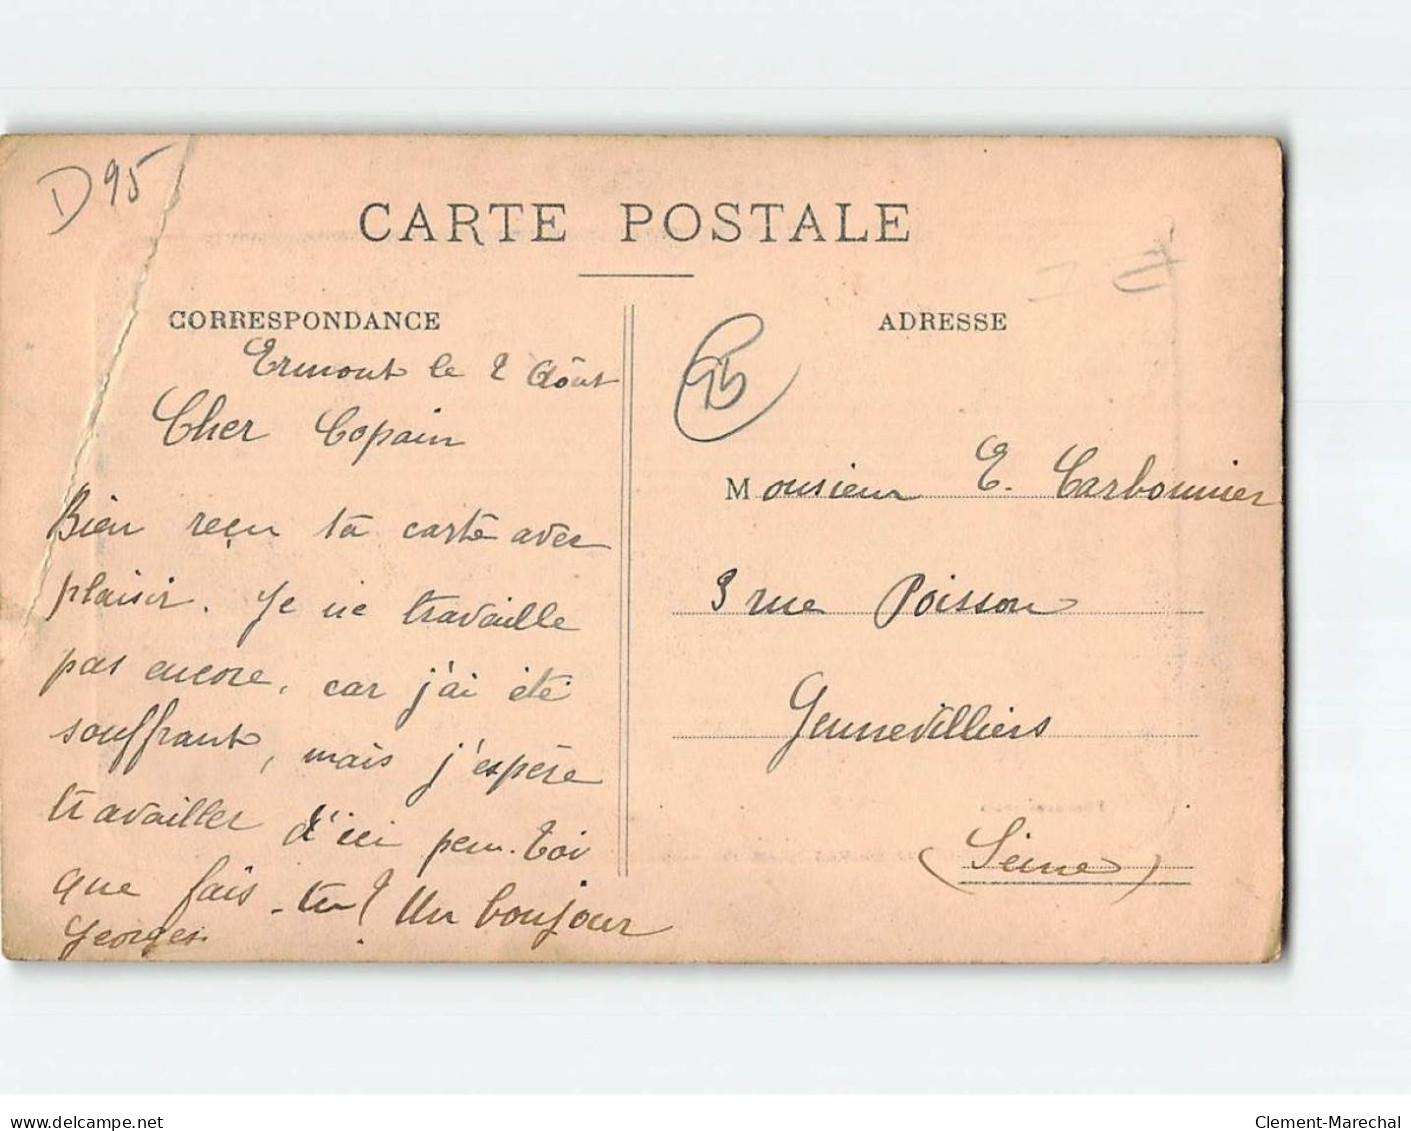 D95
CARTE POSTALE
CORRESPONDANCE
Ermont le 2 Aôut
Cher Copain
Bien reçu ta carte avec
plaisir. Je ne travaille
pas encore, car j'ai été
souffrant, mais j'espère
travailler d'ici peu. Toi
que fais-tu? Un bonjour
Georges.
ADRESSE
95
Monsieur E. Carbonnier
3 rue Poisson
Gennevilliers
(Seine)
www.delcampe.net
Clement-Marechal